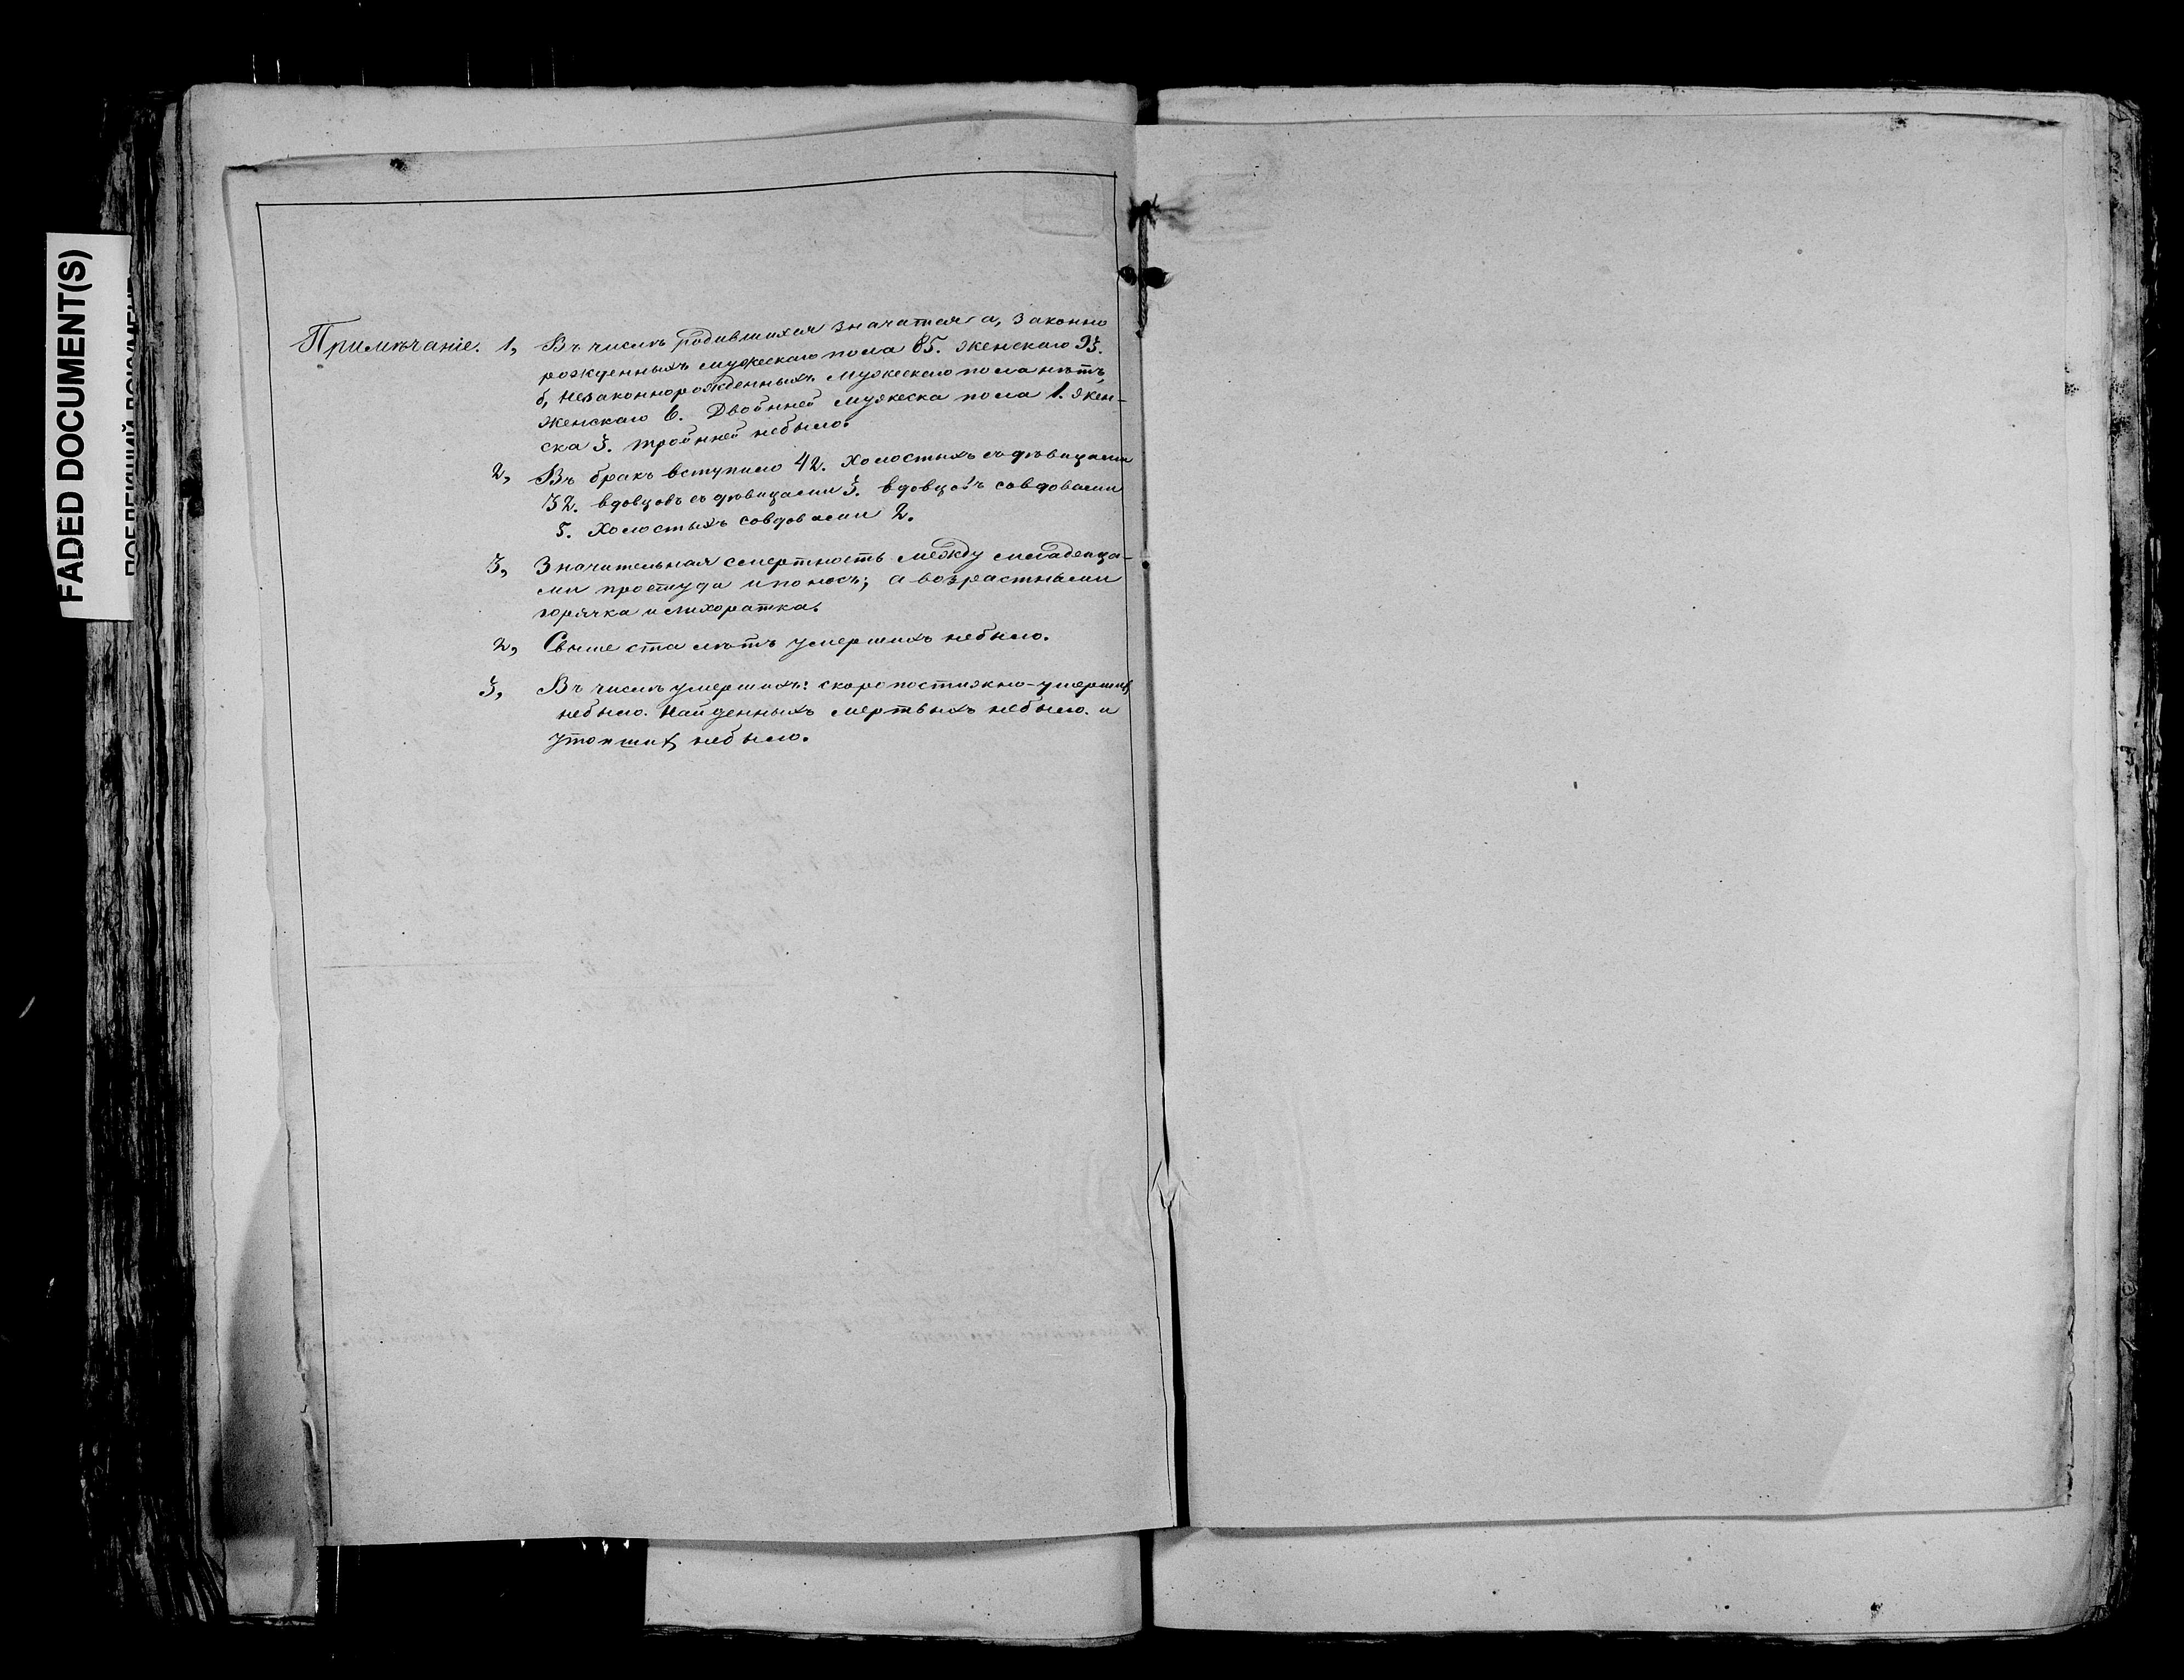 FADED DOCUMENT(S)
Примѣчаніе. 1, Въ числѣ родившихся значатся а, Законно
рожденныхъ мужескаго пола 85. женскаго 93.
б, Незаконнорожденныхъ мужескаго пола нѣтъ,
женскаго 6. Двойней мужеска пола 1. жен-
ска 3. тройней небыло.
2, Въ бракъ вступило 42. Холостыхъ съ дѣвицами
32. вдовцовъ съ дѣвицами 3. вдовцовъ совдовами
5. Холостыхъ совдовами 2.
3, Значительная смертность между младенца-
ми простуда и поносъ; а возрастными
горячка и лихоратка.
2, Свыше ста лѣтъ умершихъ небыло.
3, Въ числѣ умершихъ: скоропостижно-умершихъ
небыло. Найденныхъ мертвыхъ небыло. и
утопшихъ небыло.